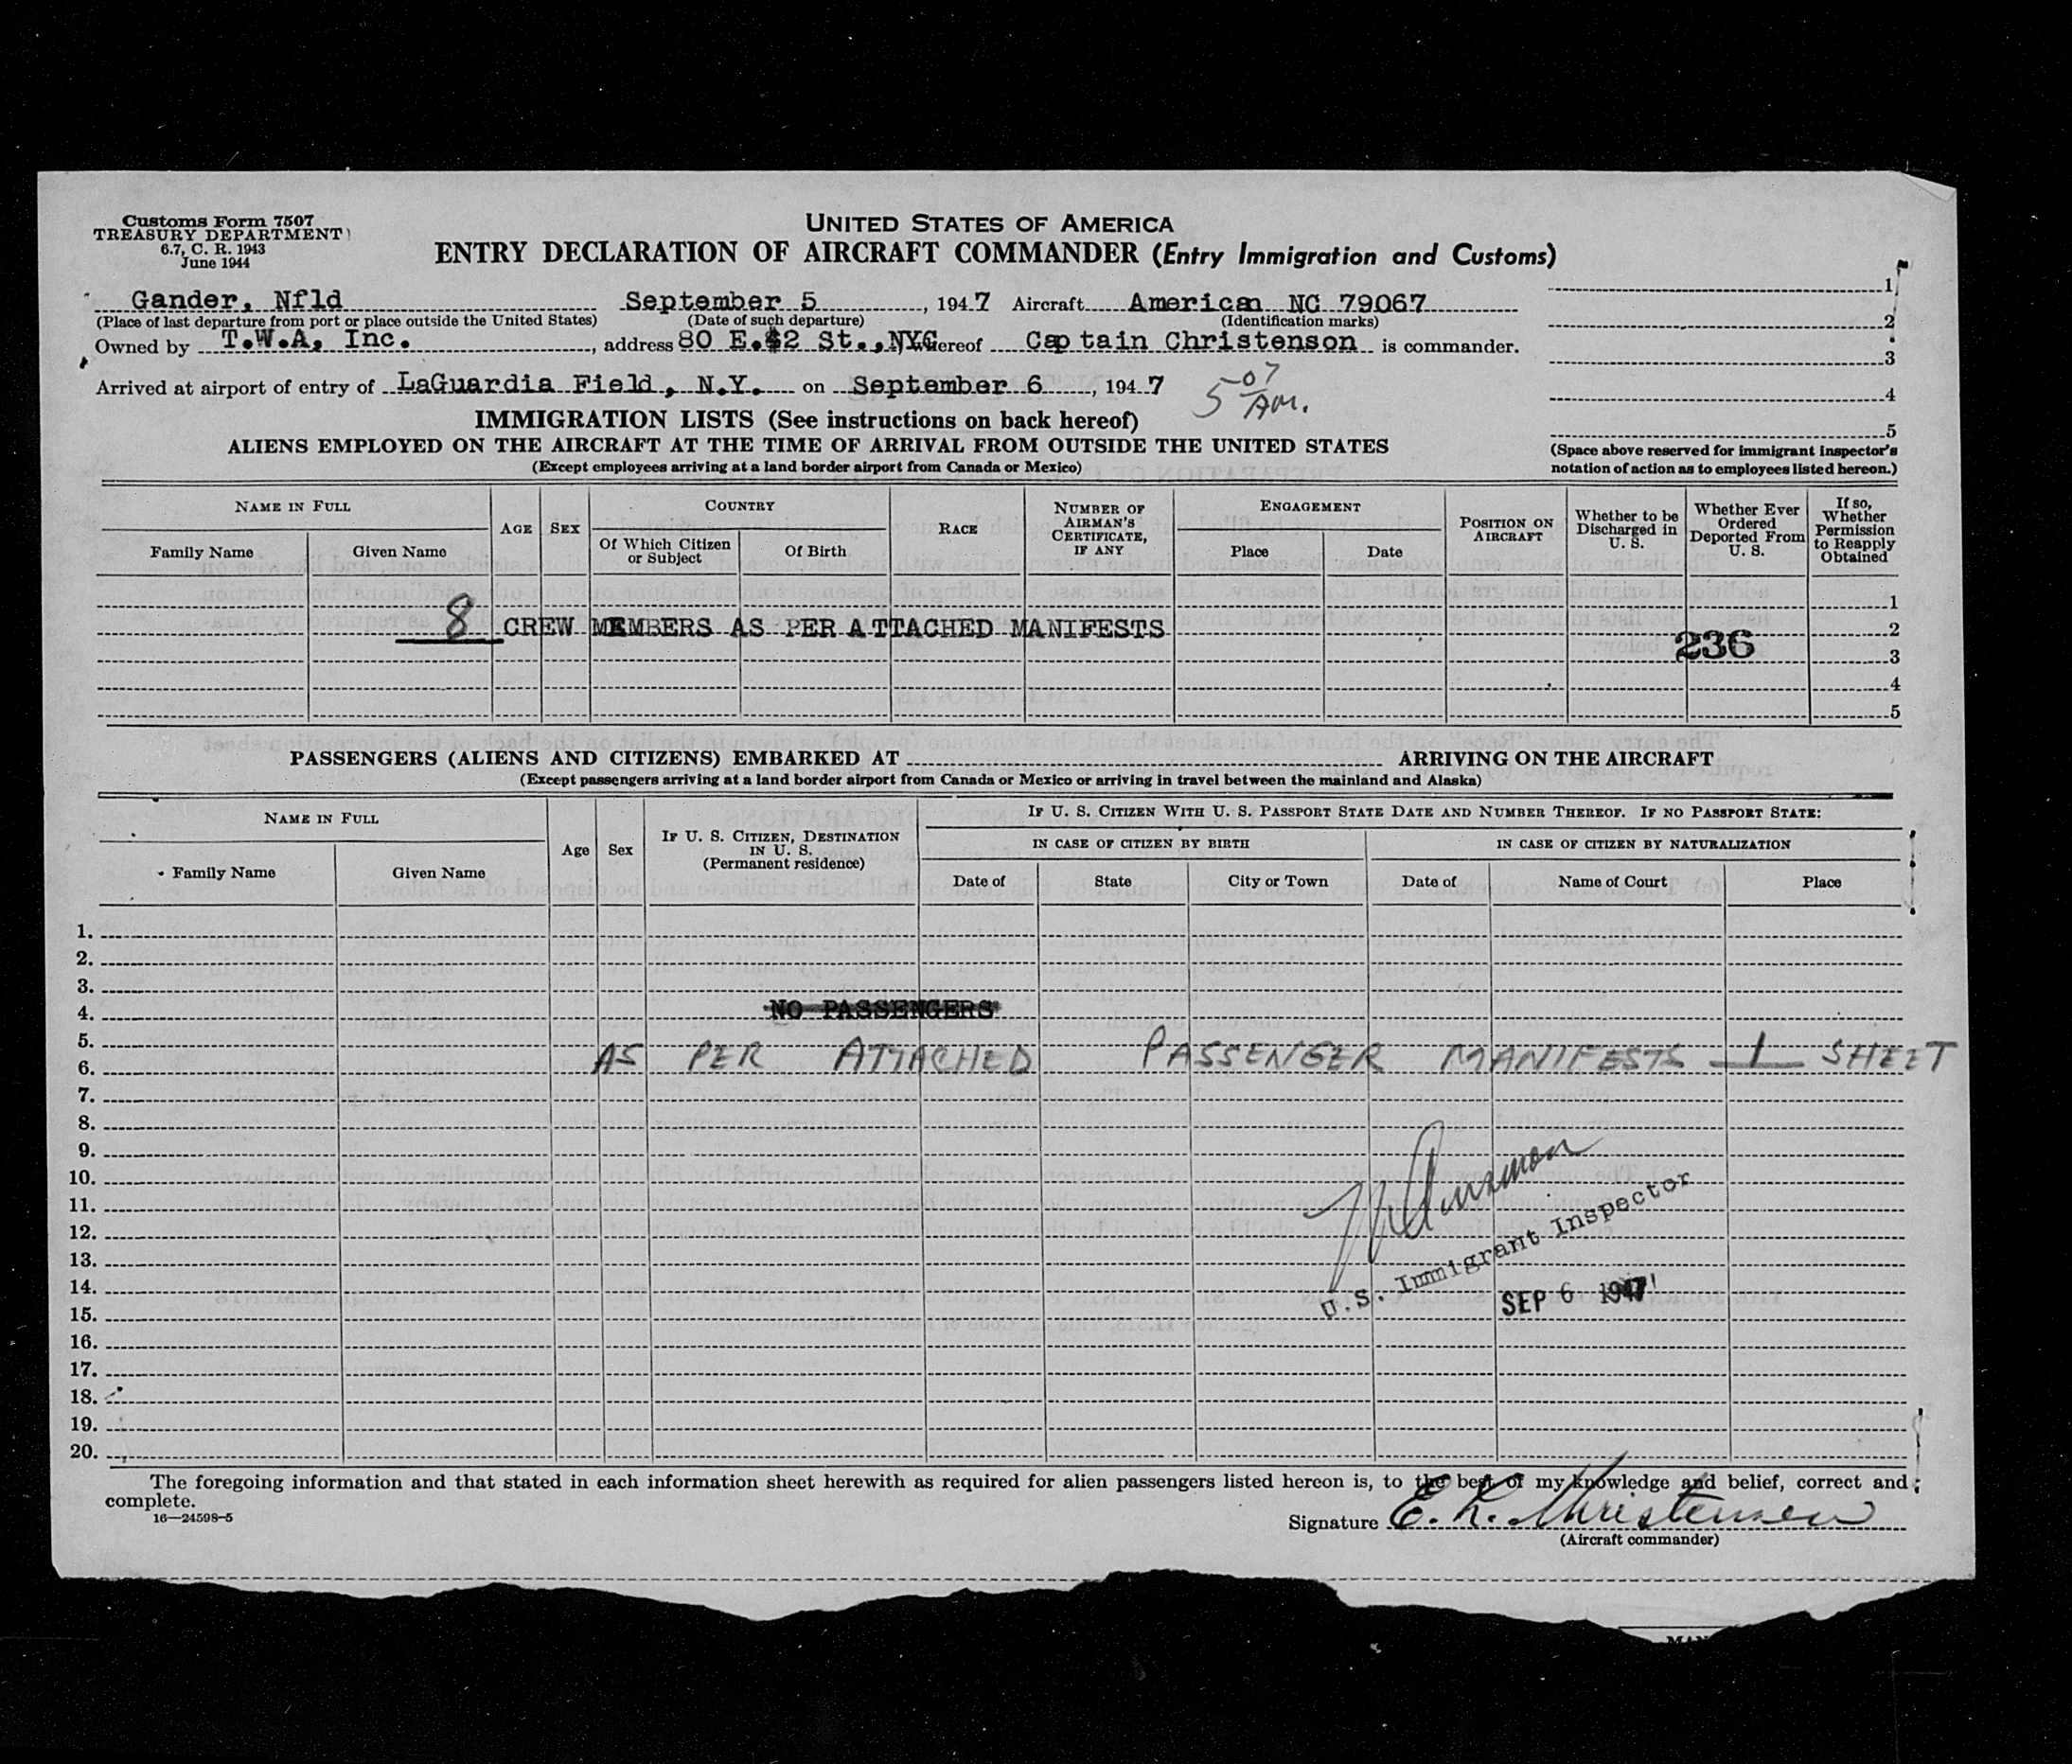 Customs Form 7507
TREASURY DEPARTMENT
6.7, C. R. 1943
June 1944
UNITED STATES OF AMERICA
ENTRY DECLARATION OF AIRCRAFT COMMANDER (Entry Immigration and Customs)
Gander, Nfld September 5, 1947 Aircraft American NC 79067
(Place of last departure from port or place outside the United States) (Date of such departure) (Identification marks)
Owned by T.W.A, Inc., address 80 E. 42 St., NYC whereof Captain Christenson is commander.
Arrived at airport of entry of LaGuardia Field, N.Y. on September 6, 1947 5 07 AM.
1
2
3
4
5
(Space above reserved for immigrant inspector's
notation of action as to employees listed hereon.)
IMMIGRATION LISTS (See instructions on back hereof)
ALIENS EMPLOYED ON THE AIRCRAFT AT THE TIME OF ARRIVAL FROM OUTSIDE THE UNITED STATES
(Except employees arriving at a land border airport from Canada or Mexico)
NAME IN FULL
Family Name Given Name
AGE SEX
COUNTRY
Of Which Citizen or Subject Of Birth
RACE
NUMBER OF AIRMAN'S CERTIFICATE, IF ANY
ENGAGEMENT
Place Date
POSITION ON AIRCRAFT
Whether to be Discharged in U. S.
Whether Ever Ordered Deported From U. S.
If so, Whether Permission to Reapply Obtained
1
8 CREW MEMBERS AS PER ATTACHED MANIFESTS 2
236
3
4
5
PASSENGERS (ALIENS AND CITIZENS) EMBARKED AT ARRIVING ON THE AIRCRAFT
(Except passengers arriving at a land border airport from Canada or Mexico or arriving in travel between the mainland and Alaska)
NAME IN FULL
Family Name Given Name
Age Sex
IF U. S. CITIZEN, DESTINATION IN U. S. (Permanent residence)
IF U. S. CITIZEN WITH U. S. PASSPORT STATE DATE AND NUMBER THEREOF. IF NO PASSPORT STATE:
IN CASE OF CITIZEN BY BIRTH IN CASE OF CITIZEN BY NATURALIZATION
Date of State City or Town Date of Name of Court Place
1.
2.
3.
4. NO PASSENGERS
5.
6. AS PER ATTACHED PASSENGER MANIFESTS 1 SHEET
7.
8.
9.
10.
11.
12.
13.
14.
15.
16.
17.
18.
19.
20.
U.S. Immigrant Inspector
SEP 6 1947
The foregoing information and that stated in each information sheet herewith as required for alien passengers listed hereon is, to the best of my knowledge and belief, correct and
complete.
16—24598-5
Signature E. L. Christensen
(Aircraft commander)